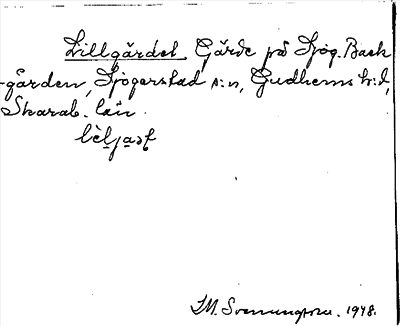 Lillgärdet, Gärde på Sjög. Back
-gården, Sjogerstad s:n, Gudhems h:d,
Skarab. län.
M. Svenungsson. 1948.